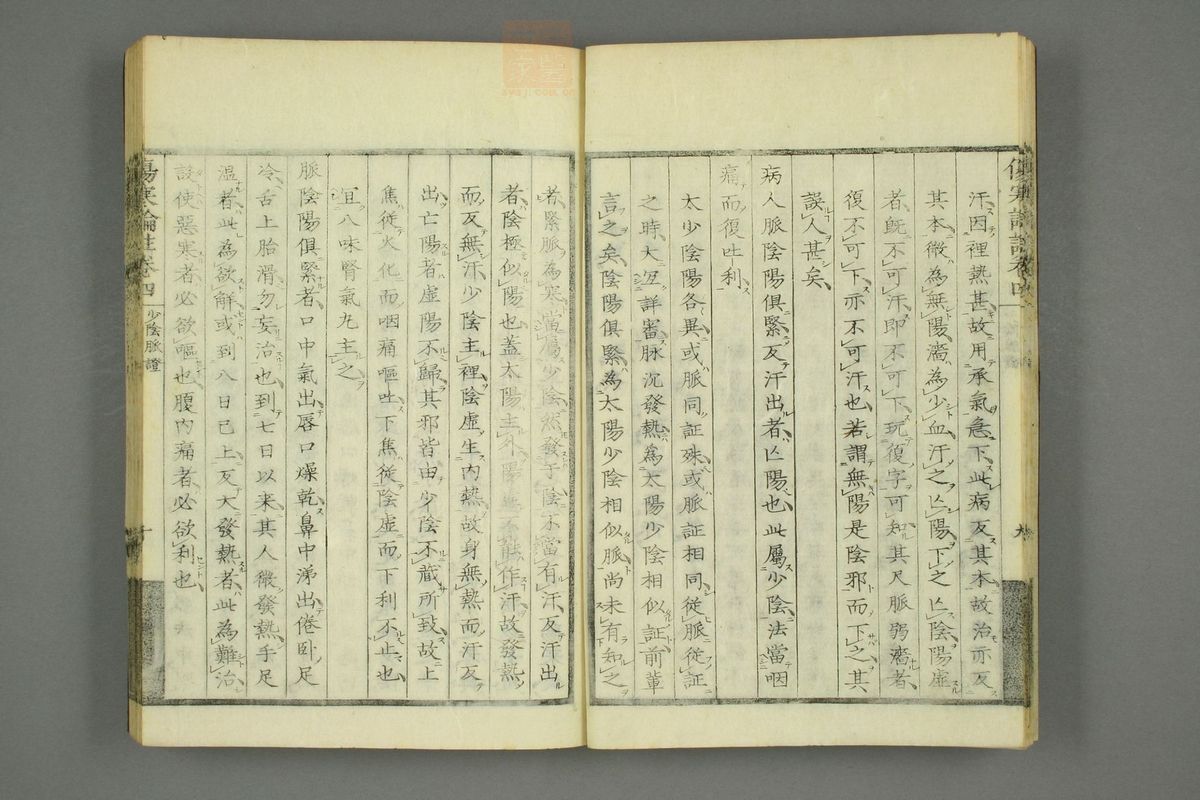 汗因裡熱甚故用承氣急下此病反其本故治亦反
其本微為無陽濇為少血汗之亾陽下之亾陰陽虛
者既不可汗即不可下玩復字可知其尺脈弱濇者
復不可下亦不可汗也若謂無陽是陰邪而下之其
誤人甚矣
病人脈陰陽俱緊反汗出者亾陽也此屬少陰法當咽
痛而復吐利
太少陰陽各異或脈同証殊或脈証相同從脈從証
之時大冝詳審脉沉發熱為太陽少陰相似証前輩
言之矣陰陽俱緊為太陽少陰相似脈尚未有知之
者緊脈為寒當屬少陰然發于陰不當有汗反汗出
者陰極似陽也蓋太陽主外陽不能作汗故發熱
而反無汗少陰主裡陰虛生内熱故身無熱而汗反
出亡陽者虛陽不歸其邪皆由少陰不藏所致故上
焦從火化而咽痛嘔吐下焦從陰虛而下利不止也
冝八味腎氣丸主之
脈陰陽俱緊者口中氣出唇口燥乾鼻中涕出倦卧足
冷舌上胎滑勿妄治也到七日以来其人微發熱手足
溫者此為欲解或到八日已上反大發熱者此為難治
設使惡寒者必欲嘔也腹内痛者必欲利也
傷寒論註卷四
少陰脈證
十